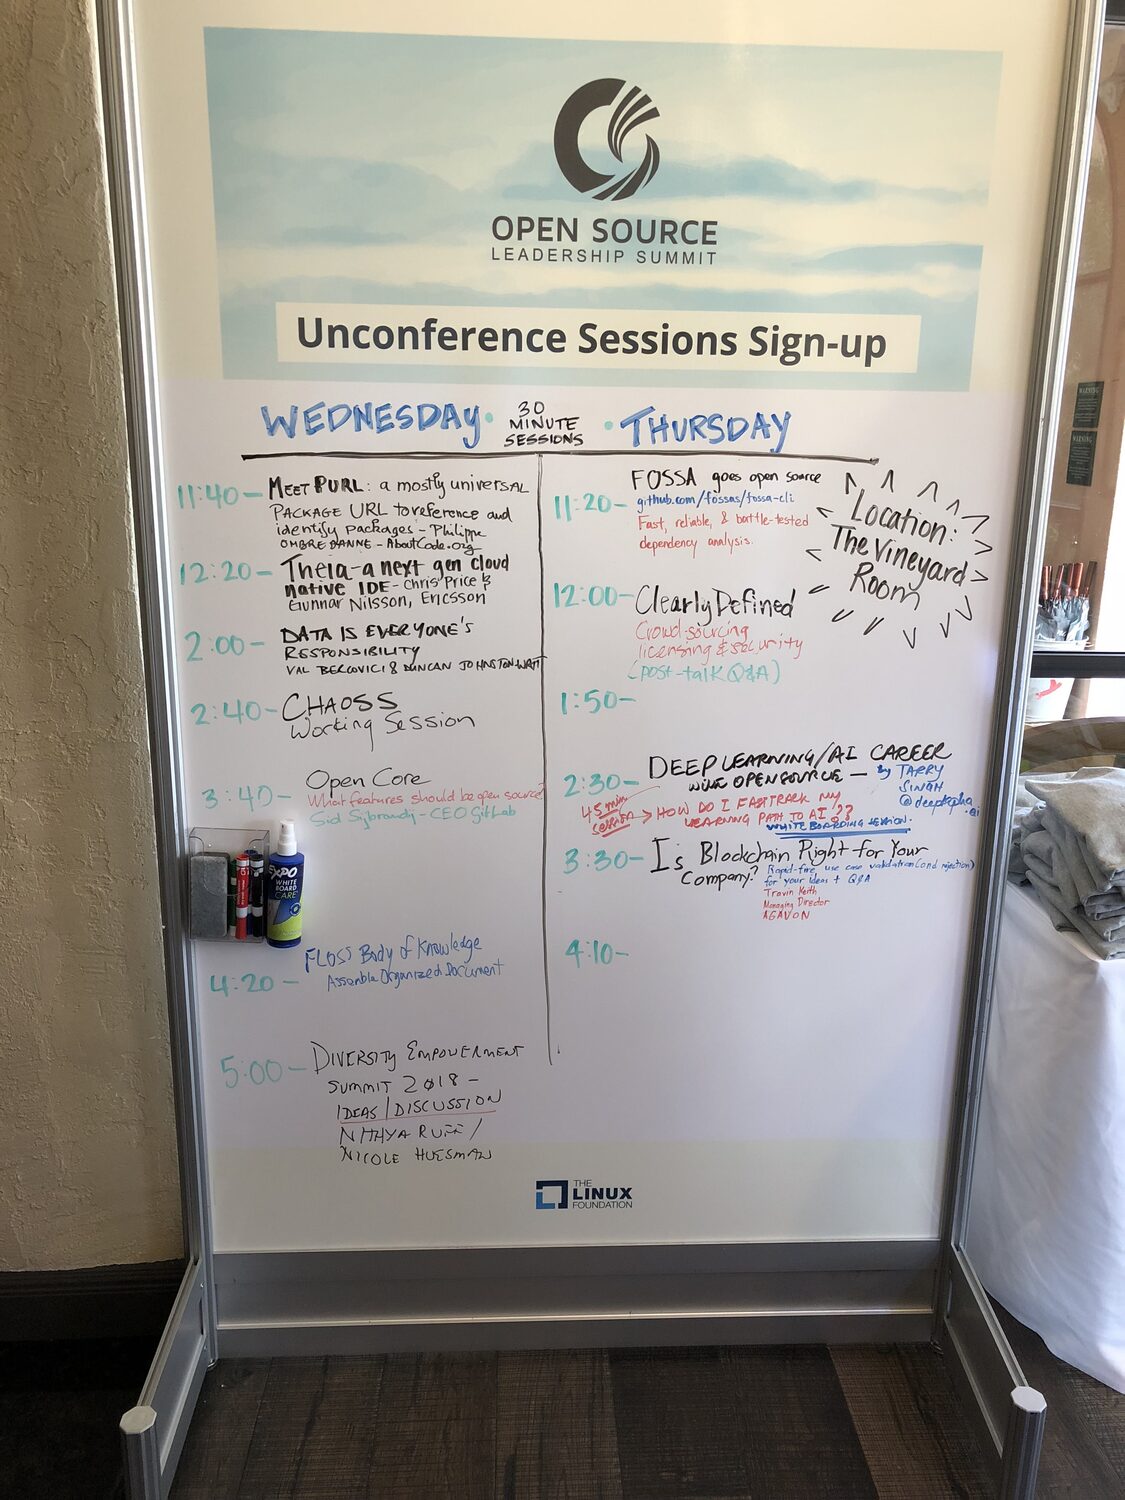 OPEN SOURCE
LEADERSHIP SUMMIT
Unconference Sessions Sign-up
WEDNESDAY
30
MINUTE
SESSIONS
THURSDAY
11:40 - MEET PURL: a mostly universAL
PACKAGE URL to reference and
identify packages - Philippe
OMBREDANNE - AboutCode.org
12:20 - Theia - a next gen cloud
native IDE - Chris Price &
Gunnar Nilsson, Ericsson
2:00 - DATA IS EVERYONE'S
RESPONSIBILITY
VAL BERCOVICI & DUNCAN JOHNSTON-WATT
2:40 - CHAOSS
Working Session
3:40 - Open Core
What features should be open source?
Sid Sijbrandij - CEO GitLab
4:20 - FLOSS Body of Knowledge
Assemble Organized Document
5:00 - DIVERSITY EMPOWERMENT
SUMMIT 2018 -
IDEAS/DISCUSSION
NITHYA RUFF/
NICOLE HUESMAN
11:20 - FOSSA goes open source
github.com/fossas/fossa-cli
Fast, reliable, & battle-tested
dependency analysis.
12:00 - ClearlyDefined
Crowd-sourcing
licensing & security
(post-talk Q&A)
1:50 -
2:30 - DEEP LEARNING/AI CAREER
WITH OPENSOURCE - by TARRY
SINGH
@deepkapha.ai
45 min
session > HOW DO I FASTRACK MY
LEARNING PATH TO AI??
WHITEBOARDING SESSION.
3:30 - Is Blockchain Right for Your
Company? Rapid-fire use case validation (and rejection)
for your ideas + Q&A
Travin Keith
Managing Director
AGAVON
4:10 -
Location:
The Vineyard
Room
EXPO
WHITE
BOARD
CARE
WARNING
WARNING
THE
LINUX
FOUNDATION